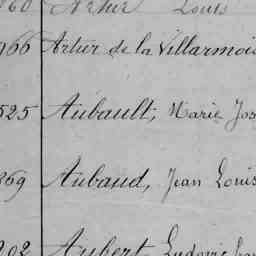 Artur Louis
966 Artur de la Villarmois
525 Aubault, Marie Jos
269 Aubaud, Jean Louis
202 Aubert Ludovic